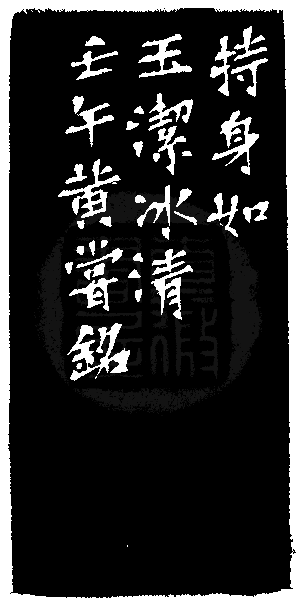 持身如
玉潔冰清
壬午黄嘗銘